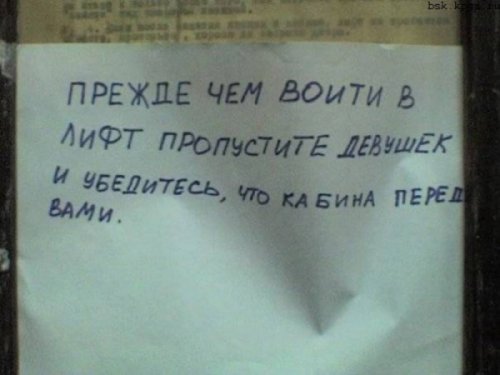 bsk.kpga.ru
ПРЕЖДЕ ЧЕМ ВОИТИ В
ЛИФТ ПРОПУСТИТЕ ДЕВУШЕК
И УБЕДИТЕСЬ, ЧТО КАБИНА ПЕРЕД
ВАМИ.